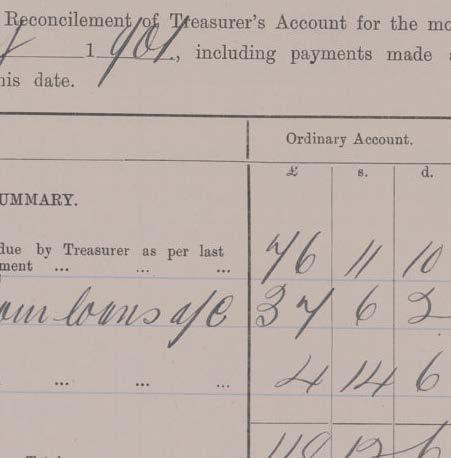 Reconcilement of Treasurer's Account for the mo
y 1901, including payments made
his date.
Ordinary Account.
£ s. d.
UMMARY.
due by Treasurer as per last
ment ... ... ... 76 11 10
our loans a/c 37 6 2
... ... ... 4 14 6
118 12 6